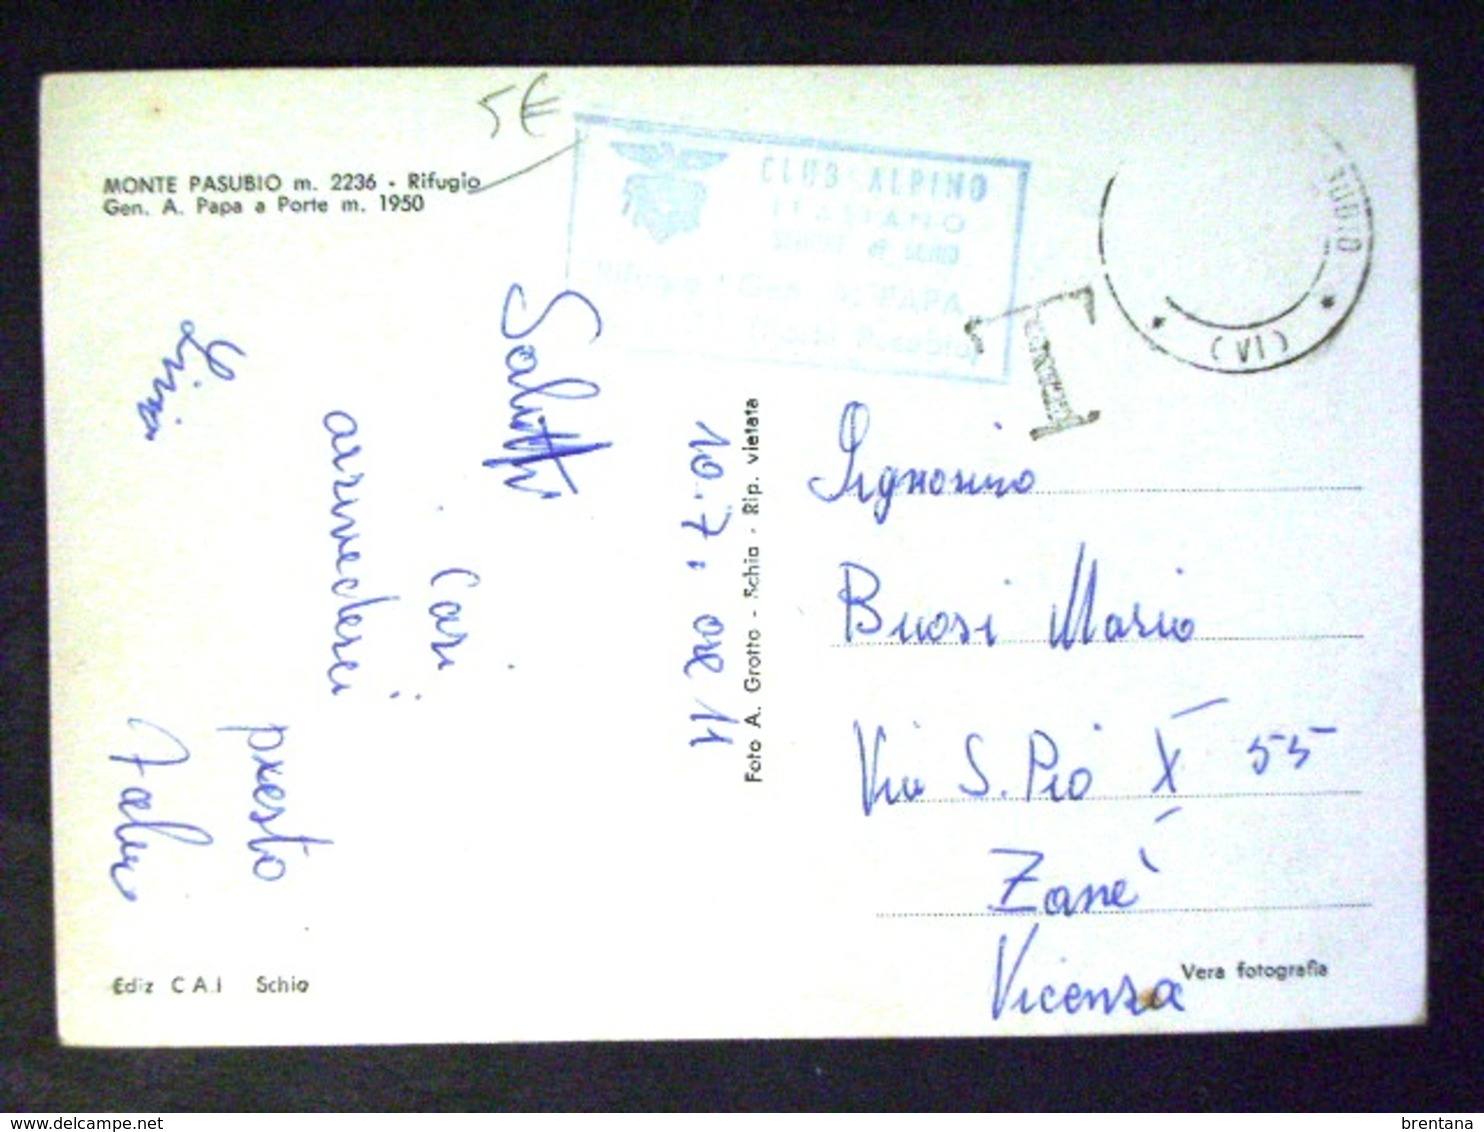 5€
MONTE PASUBIO m. 2236 - Rifugio
Gen. A. Papa a Porte m. 1950
CLUB ALPINO
ITALIANO
Rifugio "Gen. A. PAPA
(Porte Pasubio)
UBIO
* (VI) *
T
Saluti
Cari
arrivederci
presto
10.7. ore 11
Foto A. Grotto - Schio - Rip. vietata
Signorino
Buosi Mario
Via S. Pio X 55
Zanè
Vicenza
Vera fotografia
Ediz C A I Schio
brentana